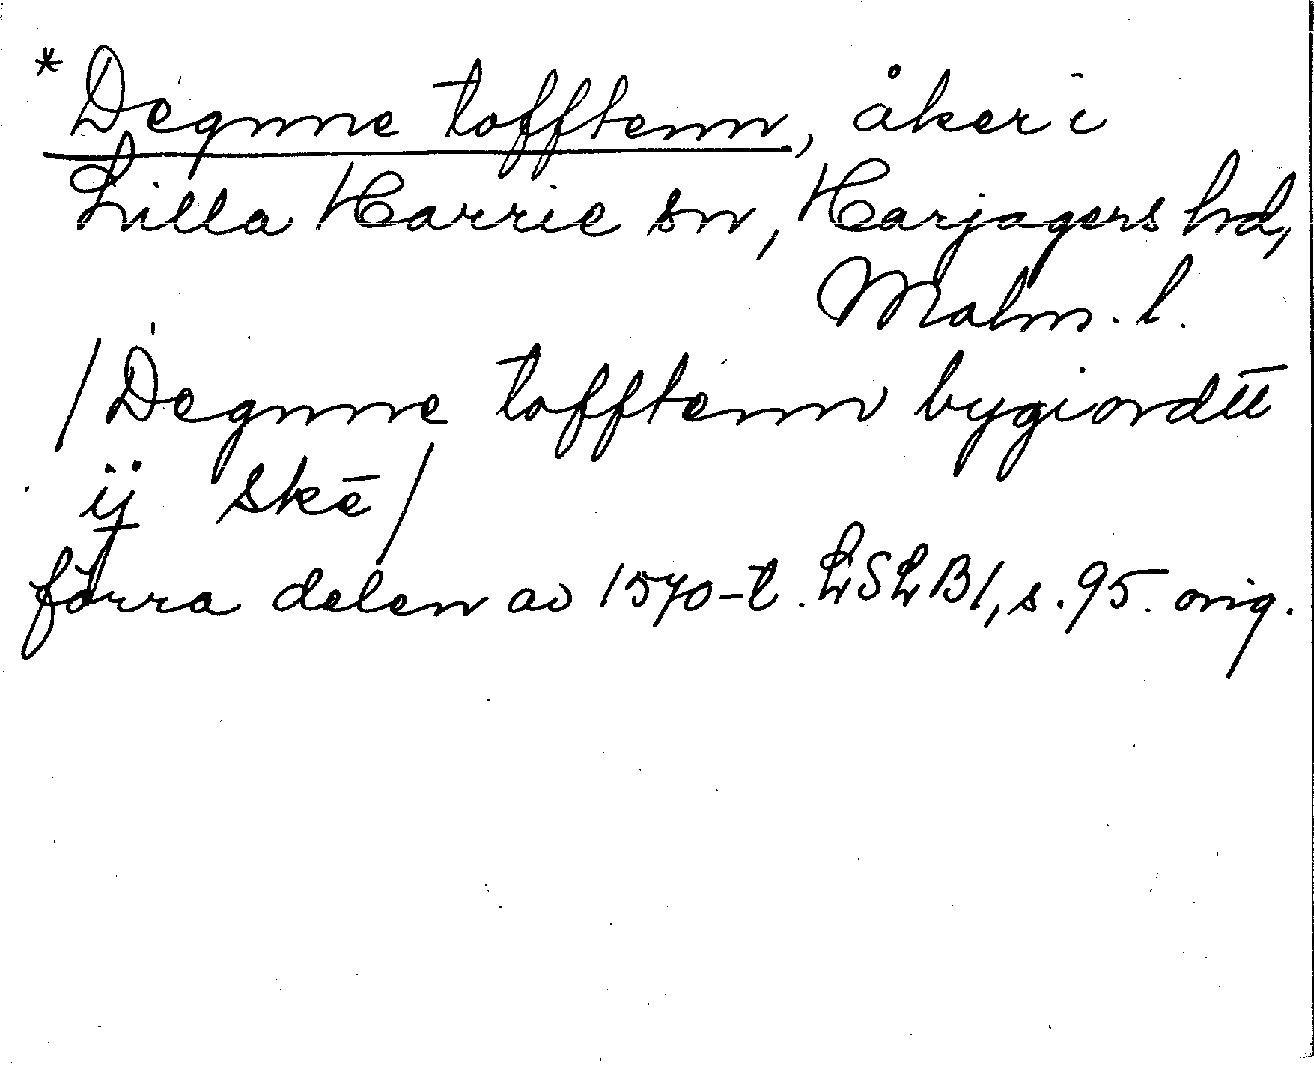 *Degnne tofftenn, åker i
Lilla Harrie sn, Harjagers hd,
Malm. l.
/Degnne tofftenn bygiordtt
ij skē/
förra delen av 1570-t. LSLB1, s. 95. orig.